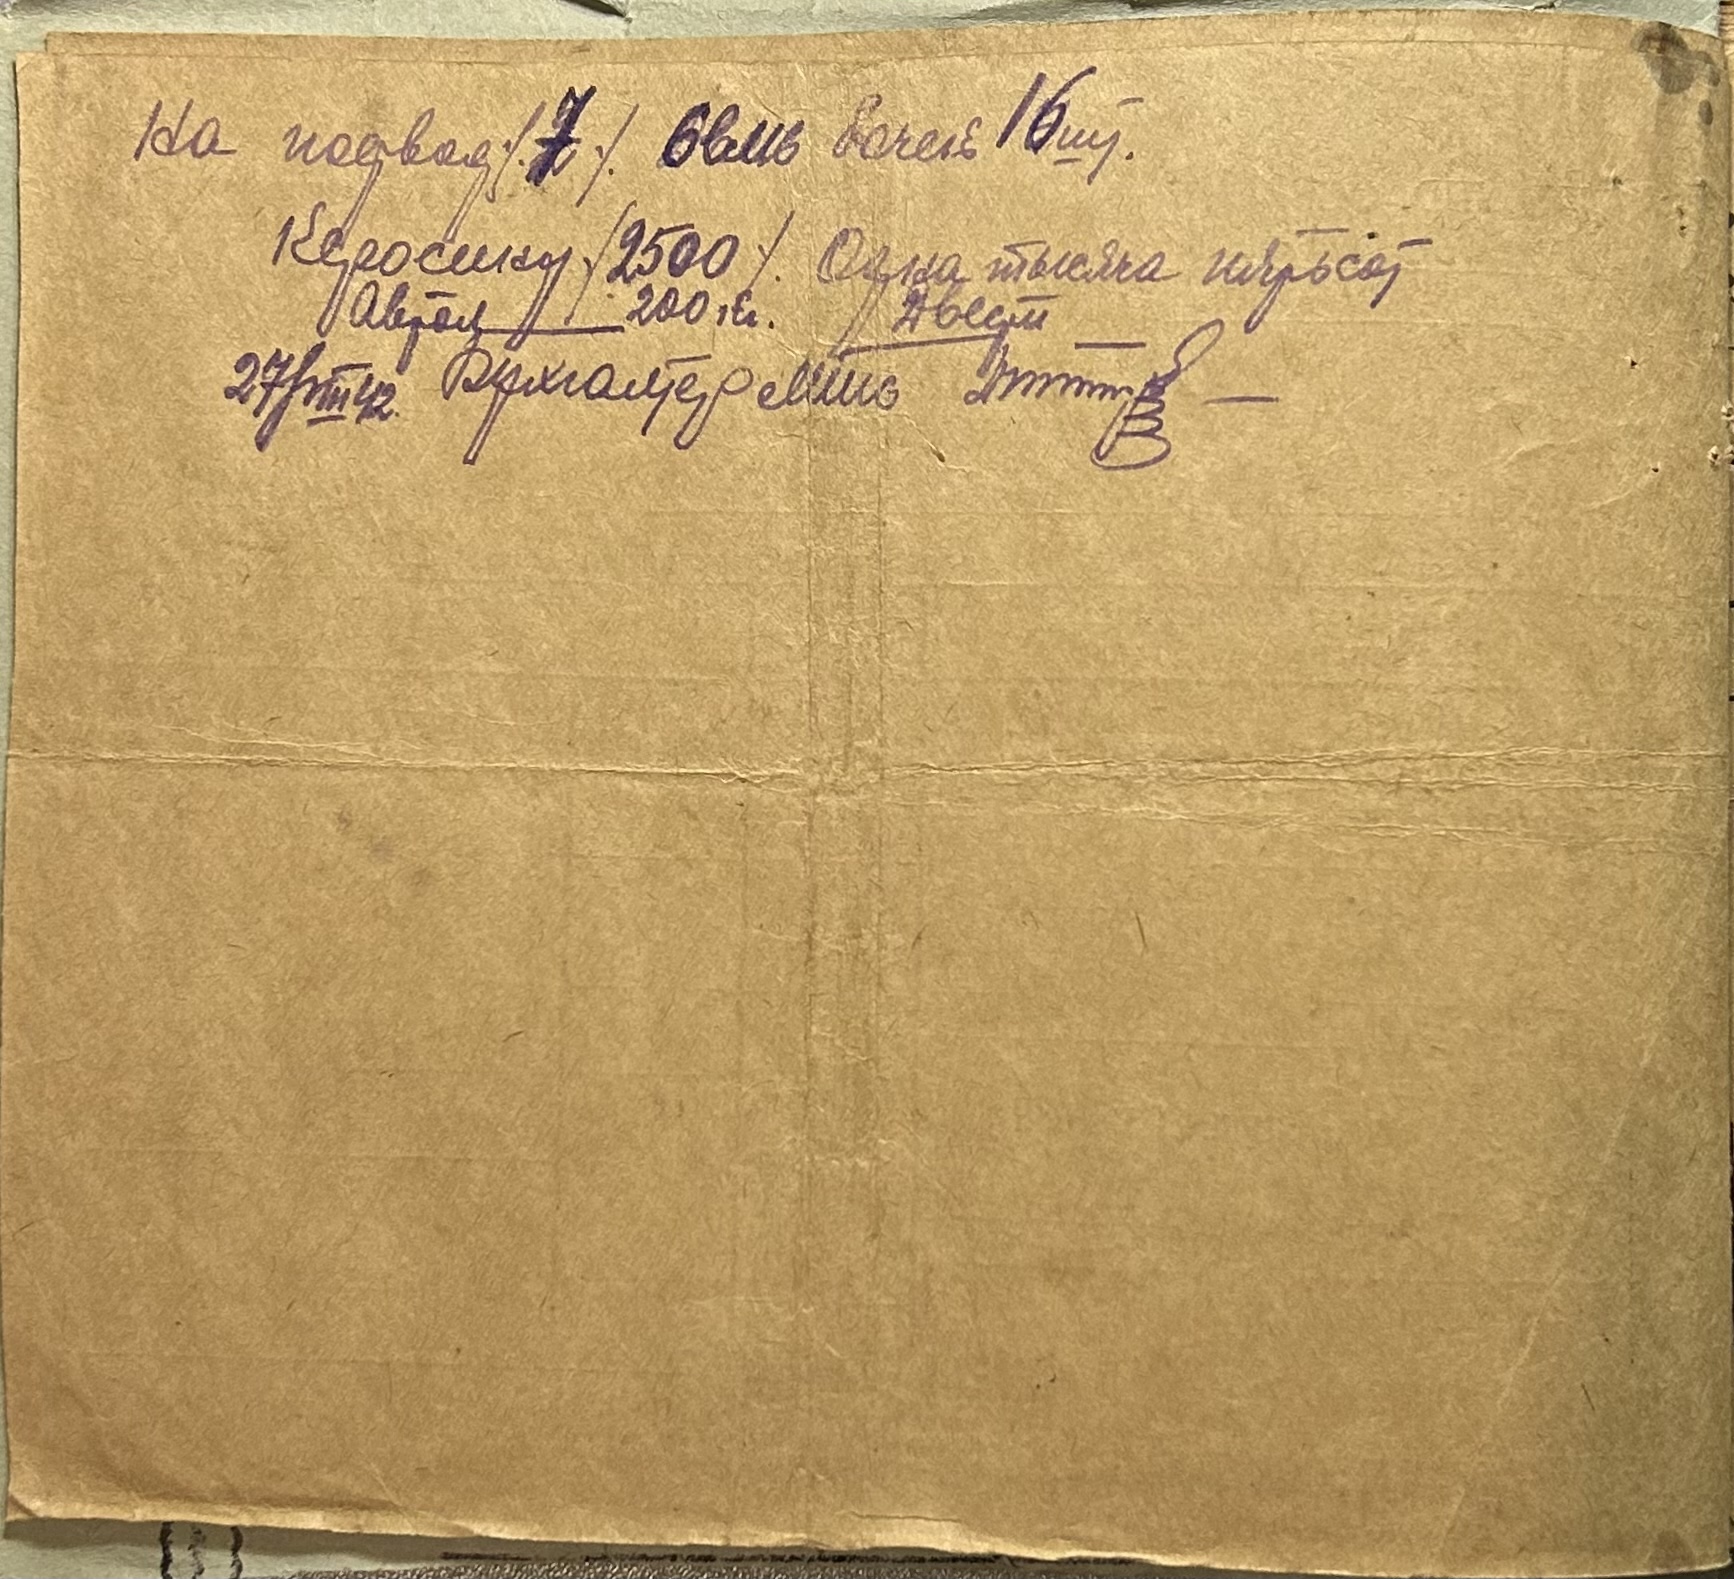 На подвод /7/ семь бочек 16 шт.
Керосину /2500/. Одна тысяча пятьсот
Автол — 200 кг. Двести —
27/VIII 42. Бухгалтер МТС